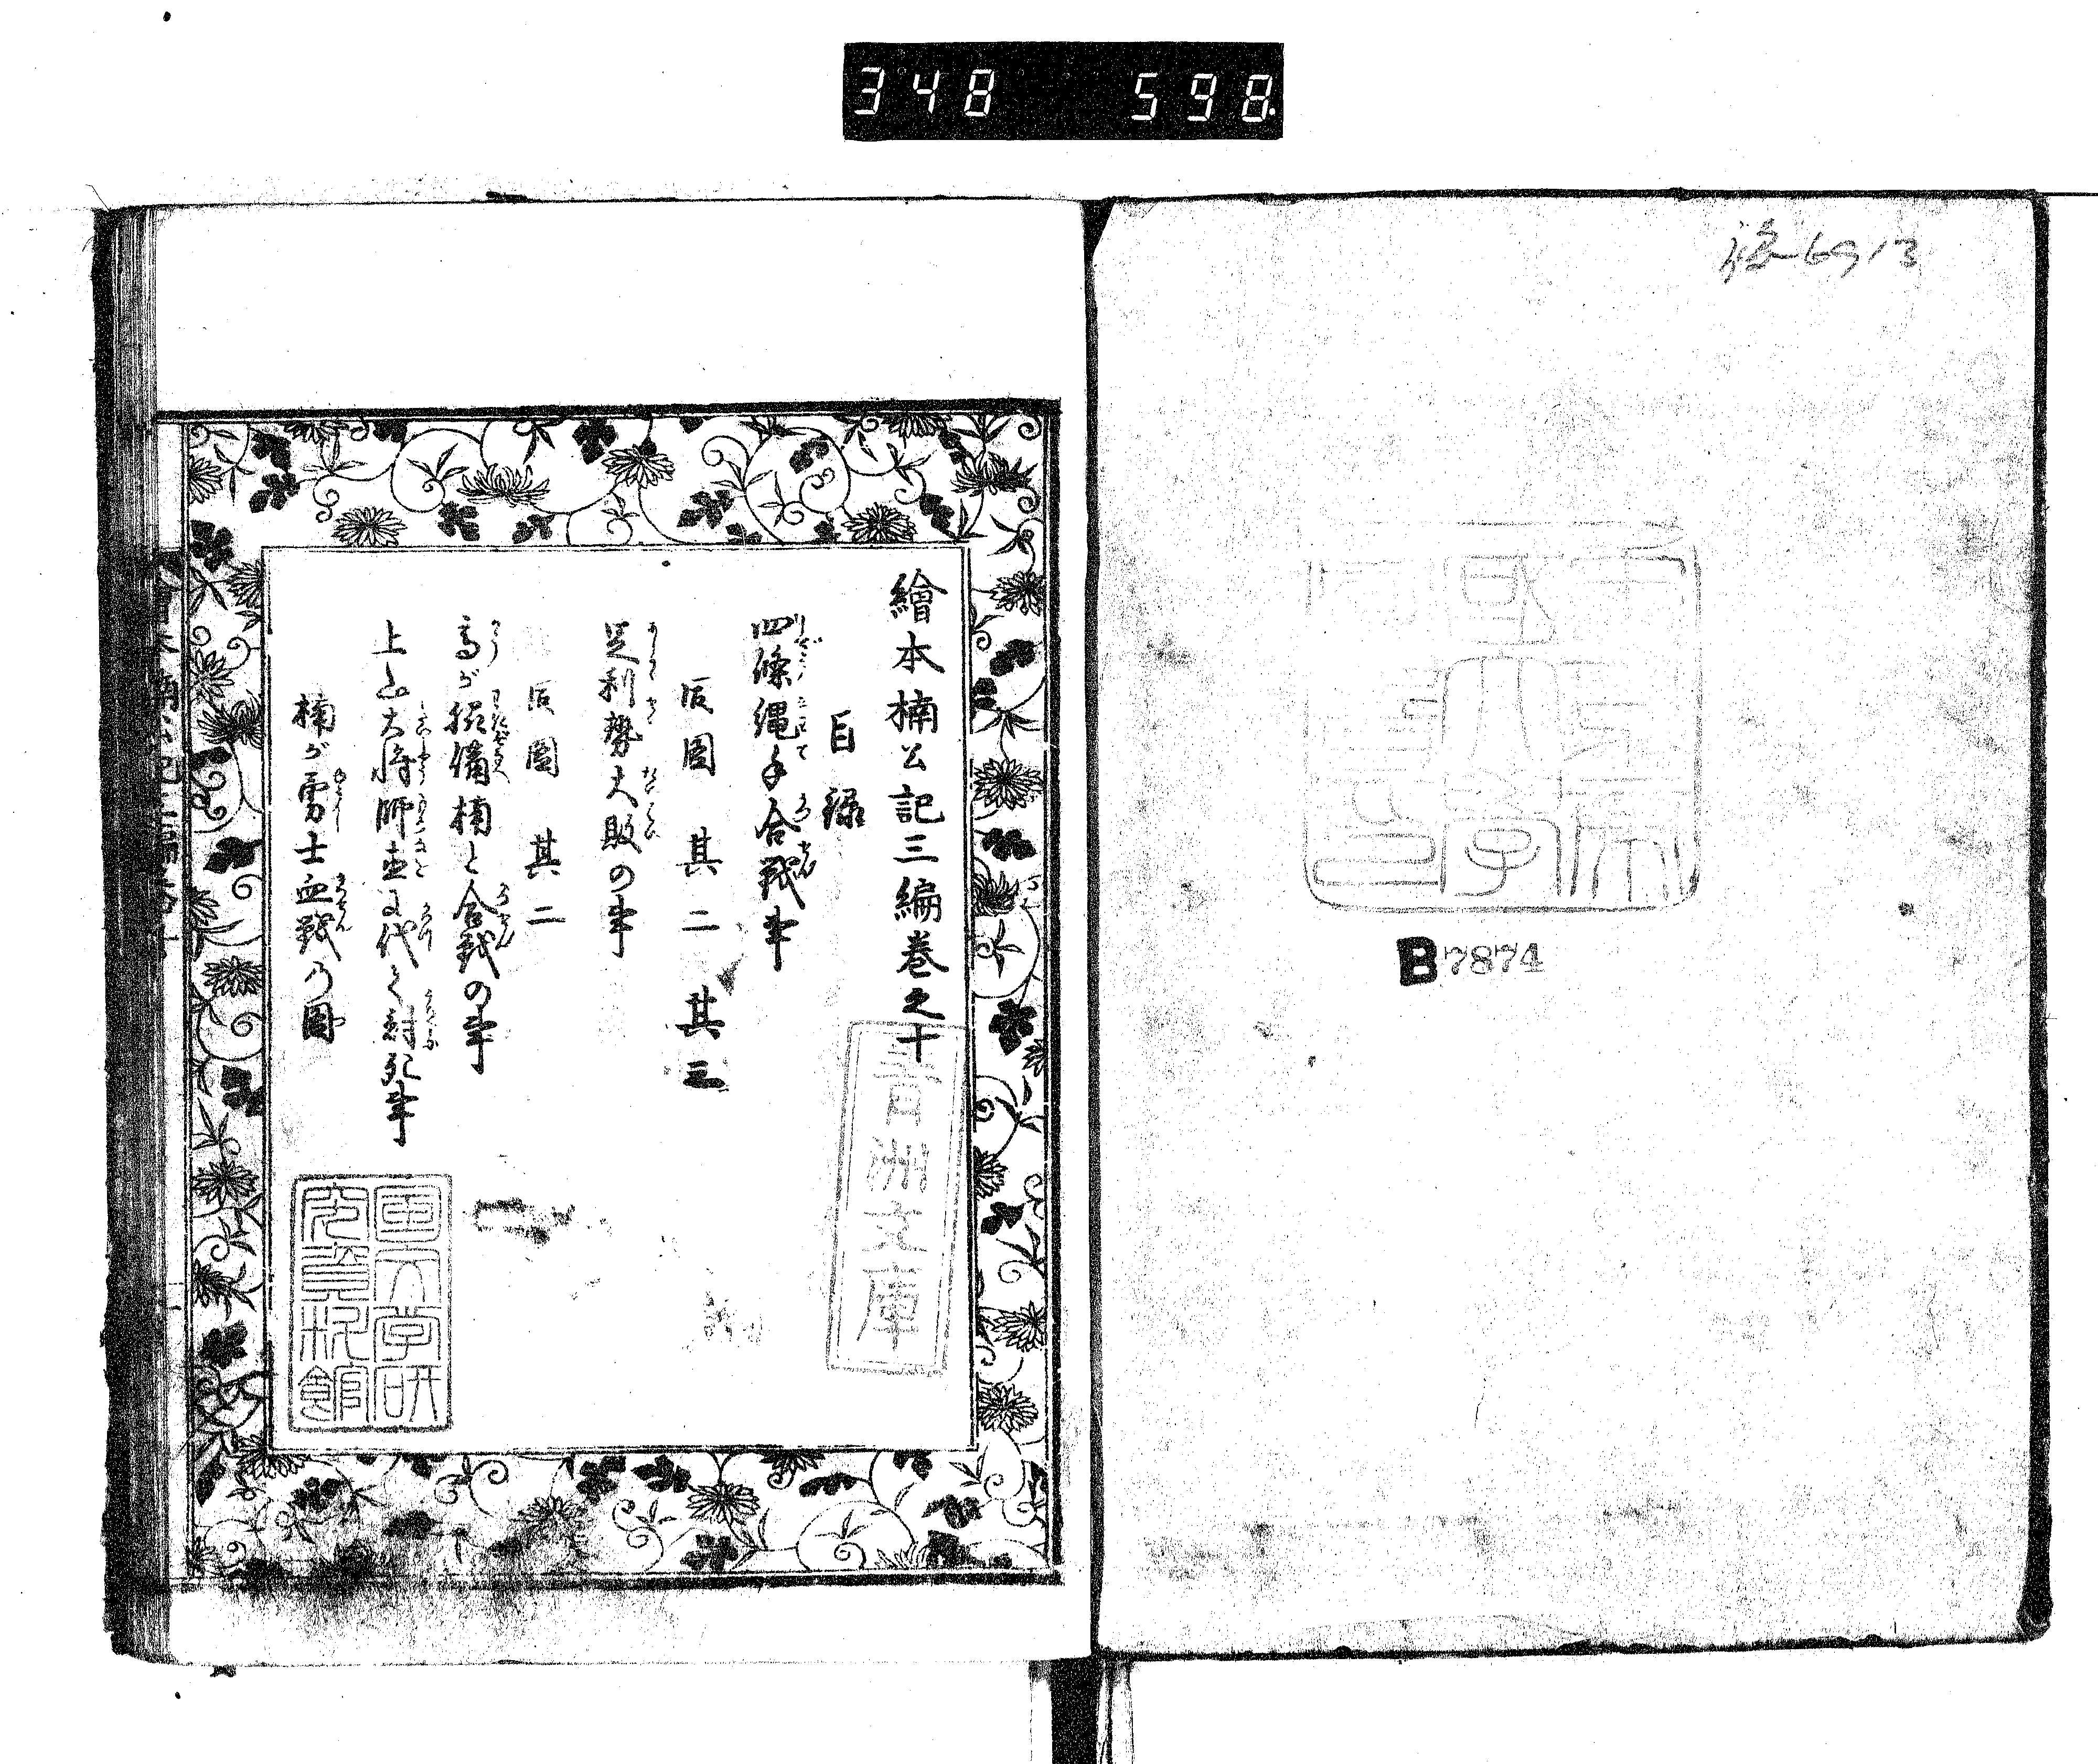 348 598
B7874
繪本楠公記三編巻之十
目録
四條縄手合戦事
仝圖 其二 其三
足利勢大敗の事
仝圖 其二
高が指備楠と合戦の事
上山大将師直に代て討死事
楠が勇士血戦の圖
青洲文庫
國文学研
究資料館